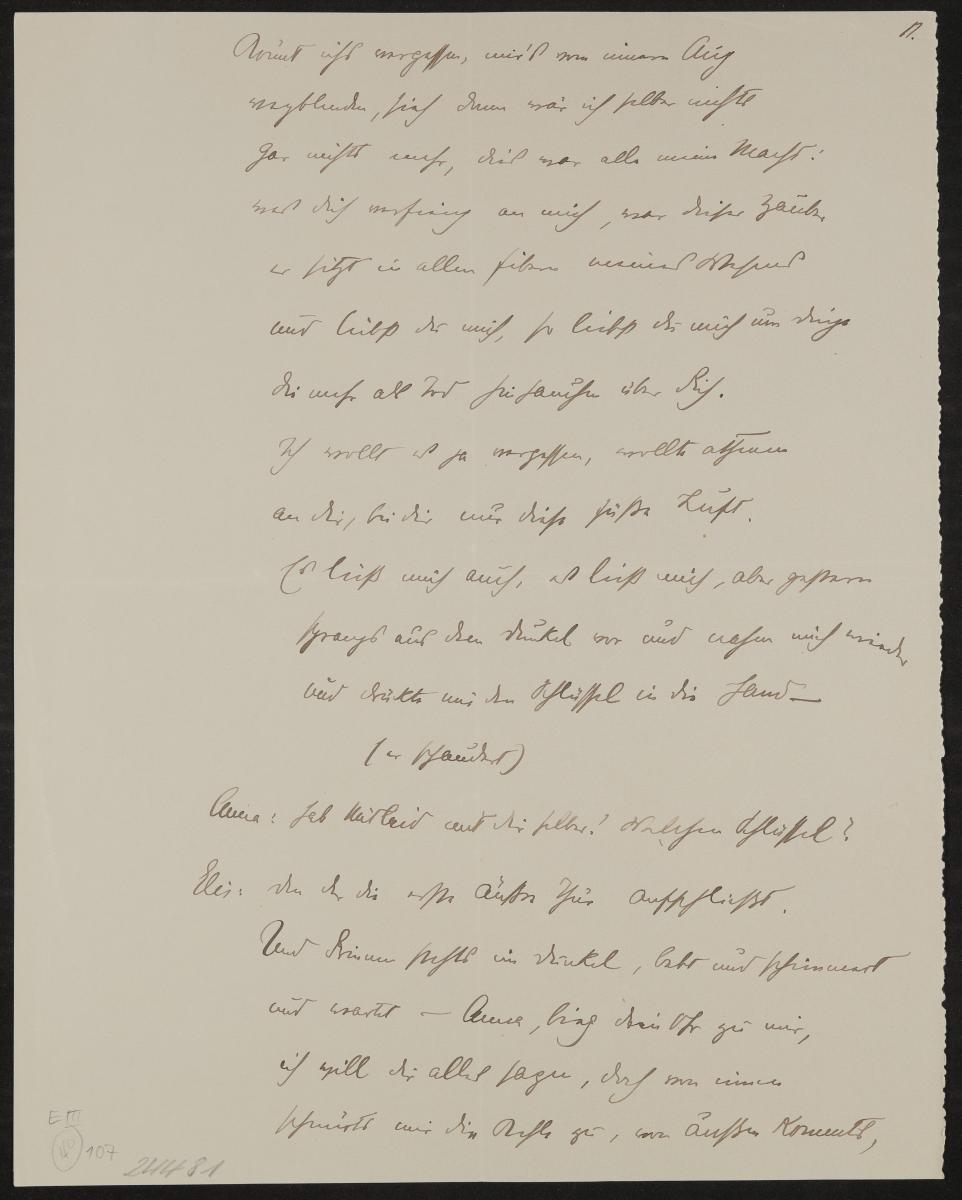 17.
Könnt ichs vergessen, mir's vom innern Aug
wegblenden, sieh dann wär ich selber nichts
gar nichts mehr, dies war all meine Macht:
was dich verfieng an mich, war dieser Zauber
er sitzt in allen Fibern meines Wesens
und liebst du mich, so liebst du mich um dings
die mehr als Tod hinhauchen über dich.
Ich wollt es ja vergessen, wollte athmen
an dir, bei dir nur diese süße Luft.
Es ließ mich auch, es ließ mich, aber gestern
sprangs aus dem Dunkel vor und nahm mich wieder
und drückte mir den Schlüssel in die Hand —
(er schaudert)
Anna: Hab Mitleid mit dir selber! Welchen Schlüssel?
Elis: den der die erste äußre Thür aufschließt.
Und drinnen stehts im Dunkel, lebt und schimmert
und wartet — Anna, bieg dein Ohr zu mir,
ich will dir alles sagen, doch von innen
schnürts mir die Kehle zu, von außen kommts,
E III
107
24481